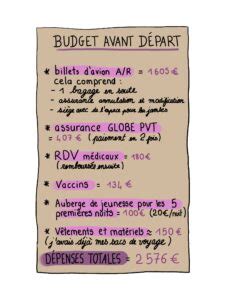 BUDGET AVANT DÉPART
* billets d'avion A/R = 1605 €
cela comprend :
- 1 bagage en soute
- assurance annulation et modification
- siège avec de l'espace pour les jambes
* assurance GLOBE PVT
= 407 € (paiement en 2 fois)
* RDV médicaux = 180€
(remboursés ensuite)
* Vaccins = 134 €
* Auberge de jeunesse pour les 5
premières nuits = 100€ (20€/nuit)
* Vêtements et matériels ≈ 150 €
(j'avais déjà mes sacs de voyage)
DÉPENSES TOTALES = 2 576 €